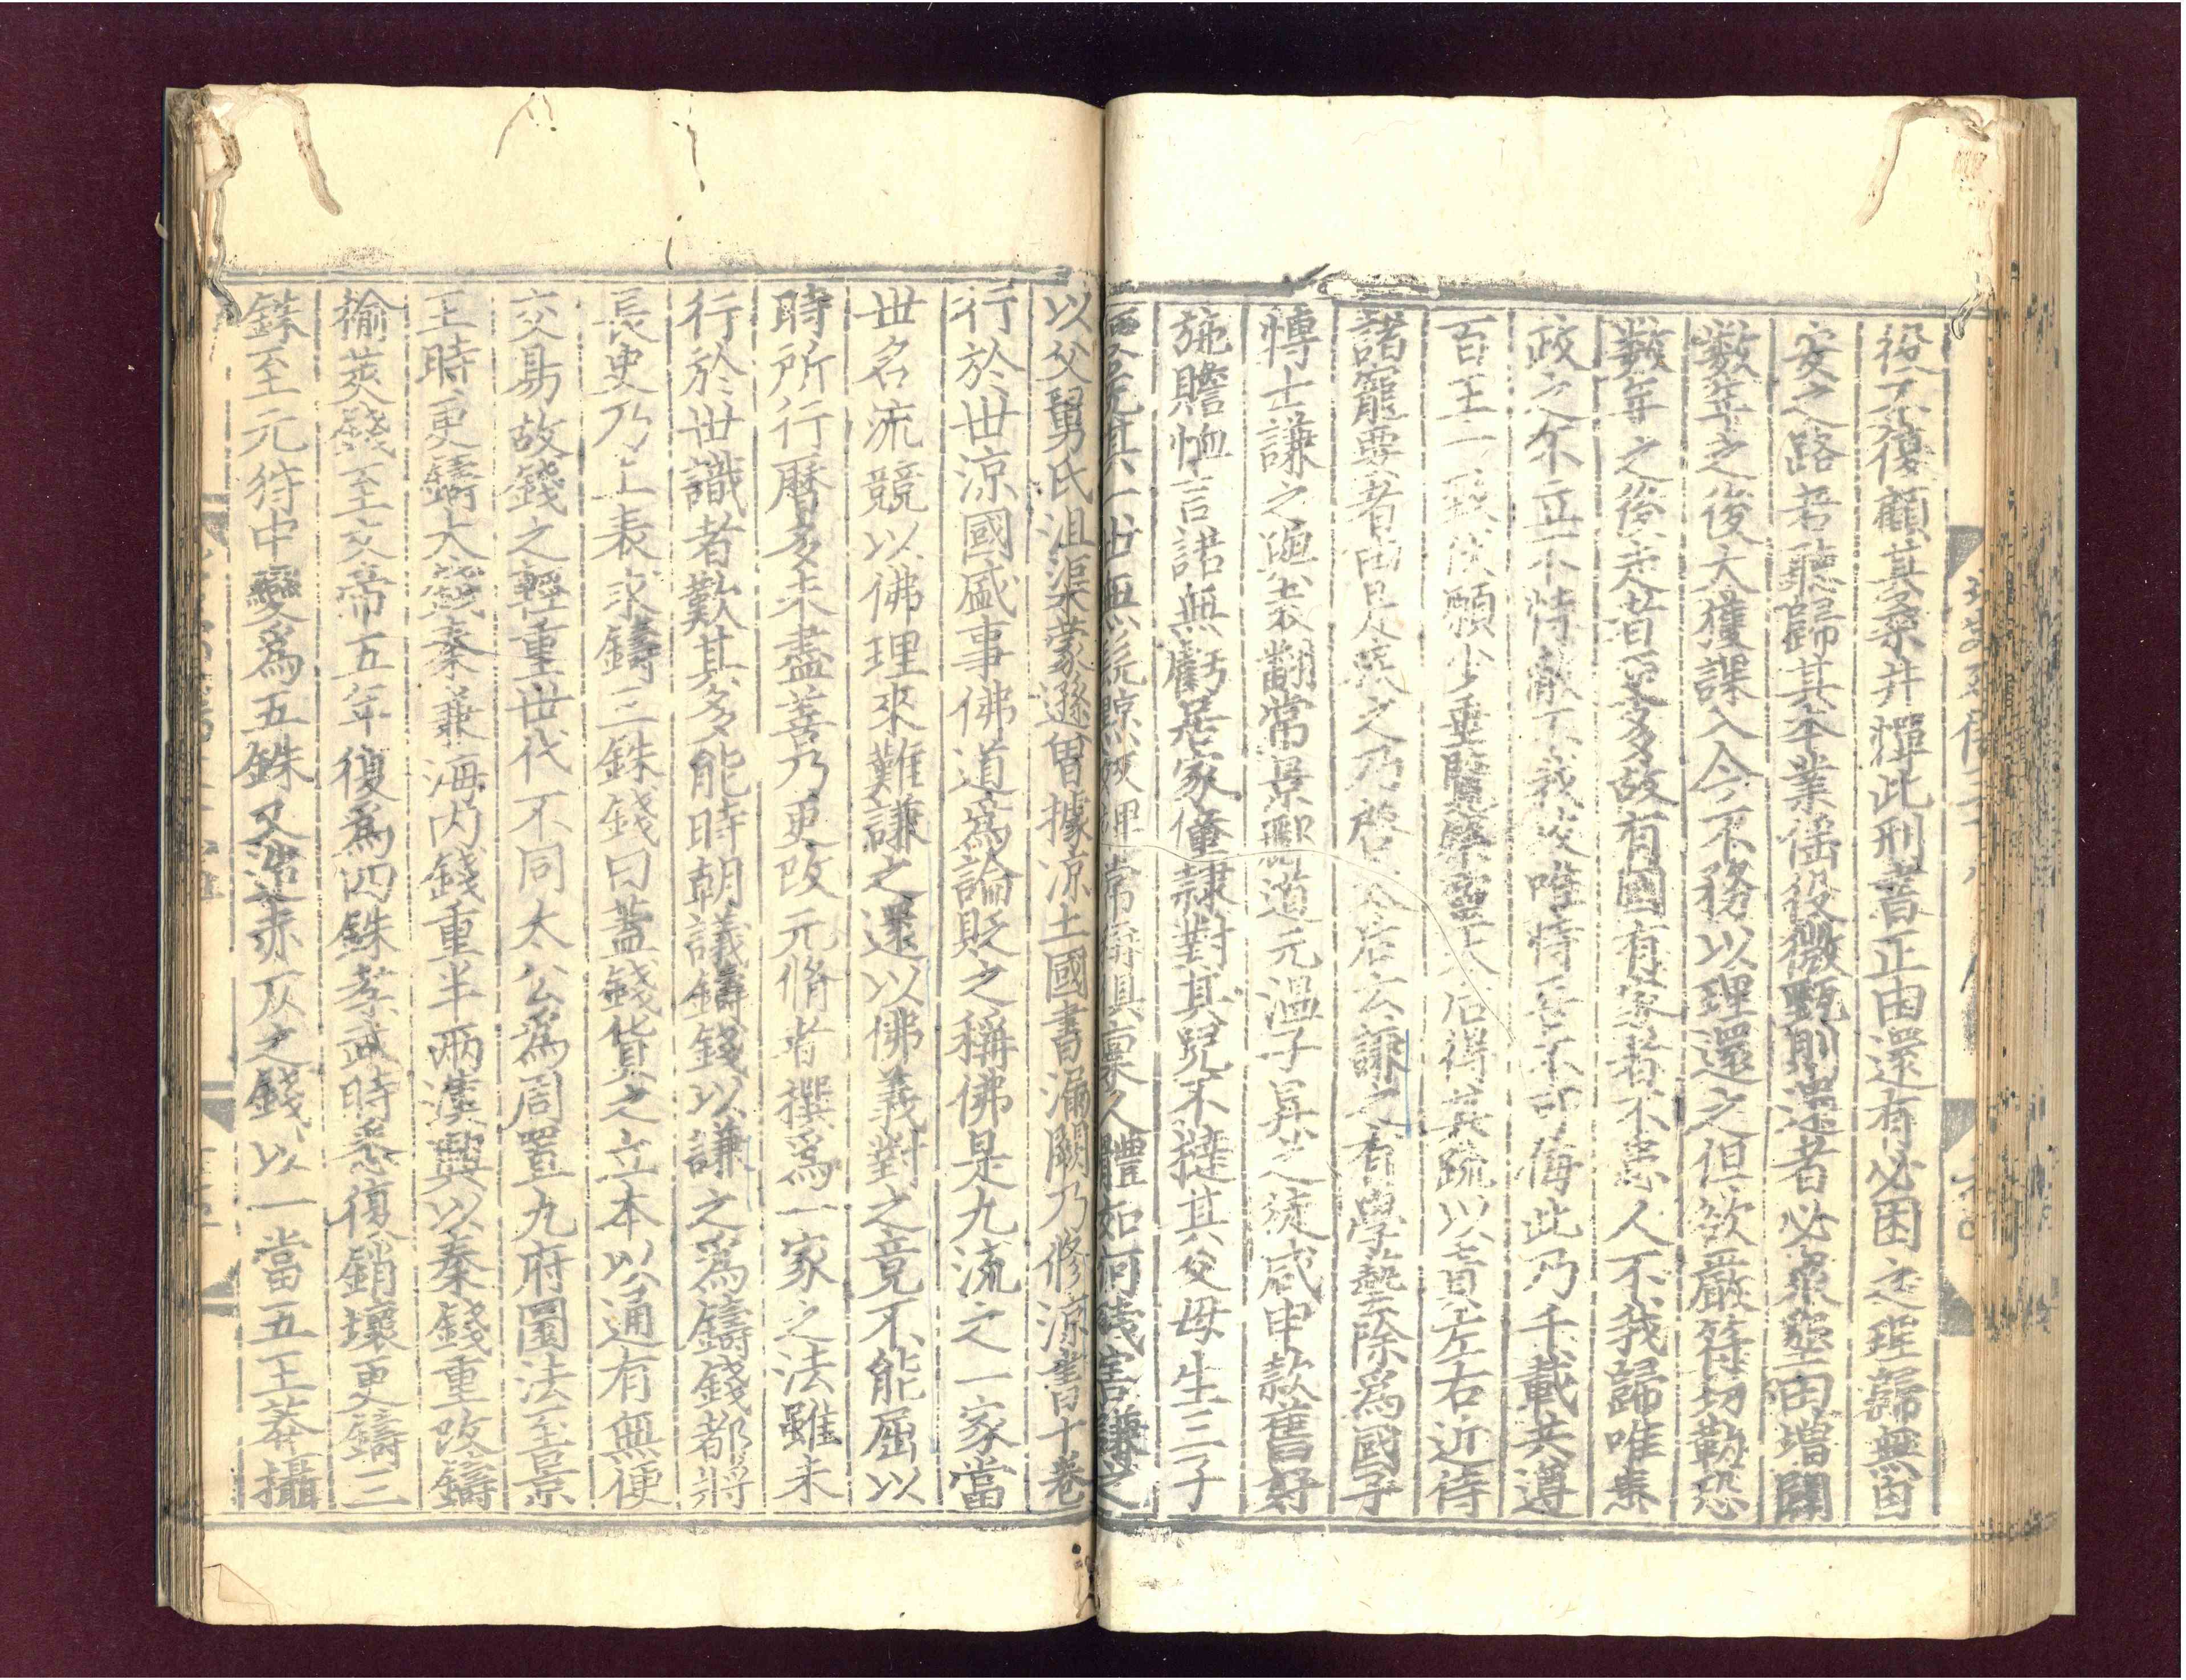 役不復顧其桑井憚此刑書正由還有必困之理歸無自
安之路若聽歸其本業徭役微甄則還者必衆墾田增闢
數年之後大獲課入今不務以理還之但欲嚴符切勒恐
數年之後走者更多故有國有家者不患人不我歸唯患
政之不立不恃敵不我攻唯恃吾不可侮此乃千載共遵
百王一致伏願少垂覽察靈太后得其疏以責左右近侍
諸寵要者由是疾之乃啓太后云謙之有學藝除爲國子
愽士謙之與袁翻常景酈道元温子昇之徒咸申款舊好
施贍恤言諾無虧居家僮隸對其兒不撻其父母生三子
便免其一世無髠黥奴婢常稱俱禀人體如何殘害謙之
以父舅氏沮渠蒙遜曾據凉土國書漏闕乃修凉書十卷
行於世涼國盛事佛道爲論貶之稱佛是九流之一家當
世名流競以佛理來難謙之還以佛義對之竟不能屈以
時所行曆多未盡善乃更改元脩者撰爲一家之法雖未
行於世識者歎其多能時朝議鑄錢以謙之爲鑄錢都將
長史乃上表求鑄三銖錢曰蓋錢貨之立本以通有無便
交易故錢之輕重世代不同太公爲周置九府圜法至景
王時更鑄大錢秦兼海内錢重半兩漢興以秦錢重改鑄
榆莢錢至文帝五年復爲四銖孝武時悉復銷壞更鑄三
銖至元狩中變爲五銖又造赤仄之錢以一當五王莽攝